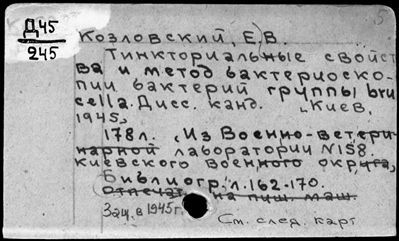 Д45
245
Козловский, Е.В.
Тинкториальные свойст
ва и метод бактериоско-
пии бактерий группы bru
cella. Дисс. канд. Киев,
1945,
178л. Из Военно-ветери-
нарной лаборатории N158.
Киевского военного округа,
Библиогр. л. 162-170.
Отпечат. на пиш. маш.
Защ. в 1945г.
См. след. карт